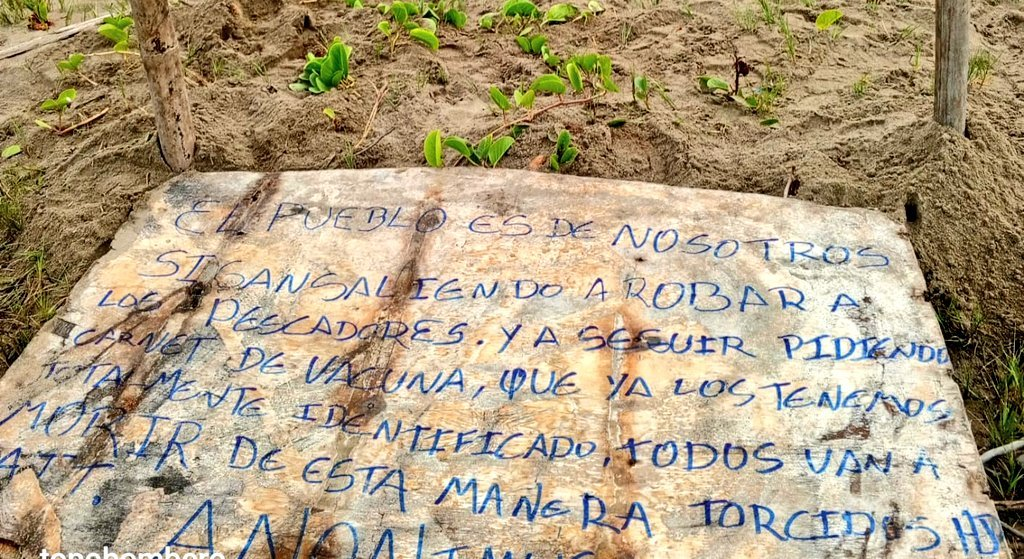 EL PUEBLO ES DE NOSOTROS
SIGANSALIENDO A ROBAR A
LOS PESCADORES. Y A SEGUIR PIDIENDO
CARNET DE VACUNA, QUE YA LOS TENEMOS
TOTALMENTE IDENTIFICADO, TODOS VAN A
MORIR DE ESTA MANERA TORCIDOS HJ
ATT.
ANONIMUS